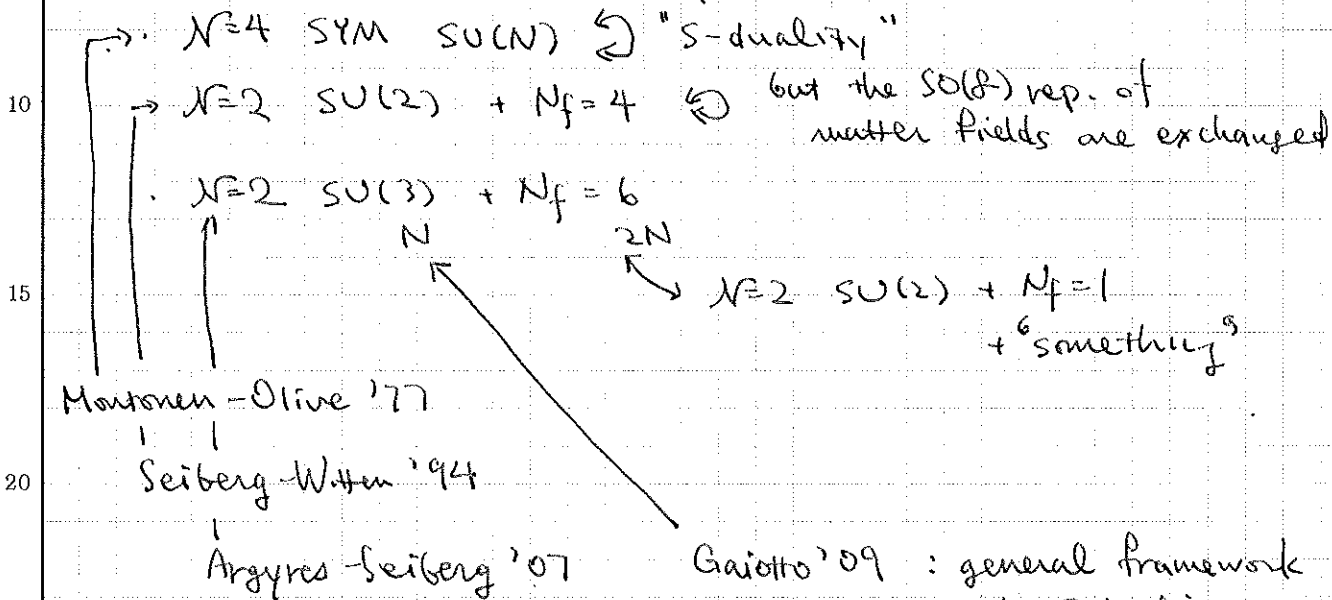 · N=4 SYM SU(N) "S-duality"
10 N=2 SU(2) + Nf=4 but the SO(8) rep. of
matter fields are exchanged
· N=2 SU(3) + Nf=6
N 2N
15 N=2 SU(2) + Nf=1
+ "something"
Montonen-Olive '77
20 Seiberg-Witten '94
Argyres-Seiberg '07 Gaiotto '09 : general framework